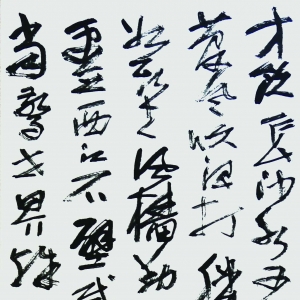 才饮长沙水又
管风吹浪打胜
如斯夫风樯动
更立西江石壁截
當驚世界殊